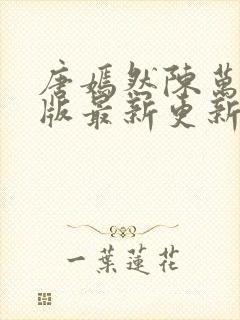 唐嫣然陳萬
版最新更新
一葉蓮花